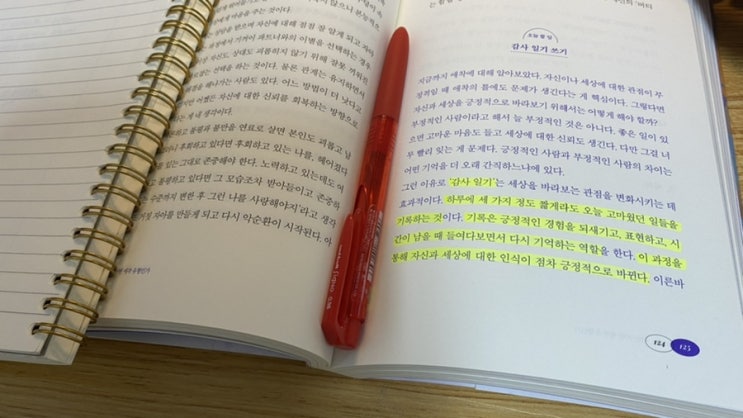 않으니 본능적
마음을 주는 것이다.
경험을 받으며 자신에 대해 점점 잘 알게 되고 자아
과정에서 기꺼이 파트너와의 이별을 선택하는 경우
자신도, 상대도 괴롭히지 않기 위해 잘못 끼워진
선택을 하는 것이다. 물론 관계는 유지하면서
해나가는 사람도 있다. 어느 방법이 더 낫다고
어쨌든 자신에 대한 신뢰를 회복하는 방향으로
게 내 생각이다.
동통과 불만을 연료로 삼면 본인도 괴롭고 남
후회하고 있다면 후회하고 있는 나를, 헤어졌다
있는 그대로 존중해야 한다. 노력하고 있는데도 여
고 있다면 그 모습조차 받아들이고 존중하
수준까지 변한 후 그런 나를 사랑해야지'라고 생각
자아를 만들게 되고 다시 악순환이 시작된다. 아
오늘 할 일
감사 일기 쓰기
지금까지 애착에 대해 알아보았다. 자신이나 세상에 대한 관점이 부
정적일 때 애착의 틀에도 문제가 생긴다는 게 핵심이다. 그렇다면
자신과 세상을 긍정적으로 바라보기 위해서는 어떻게 해야 할까?
부정적인 사람이라고 해서 늘 부정적인 것은 아니다. 좋은 일이 있
으면 고마운 마음도 들고 세상에 대한 신뢰도 생긴다. 다만 그걸 너
무 빨리 잊는 게 문제다. 긍정적인 사람과 부정적인 사람의 차이는
어떤 기억을 더 오래 간직하느냐에 있다.
그런 이유로 '감사 일기'는 세상을 바라보는 관점을 변화시키는 데
효과적이다. 하루에 세 가지 정도 짧게라도 오늘 고마웠던 일들을
기록하는 것이다. 기록은 긍정적인 경험을 되새기고, 표현하고, 시
간이 남을 때 들여다보면서 다시 기억하는 역할을 한다. 이 과정을
통해 자신과 세상에 대한 인식이 점차 긍정적으로 바뀐다. 이른바
124 125